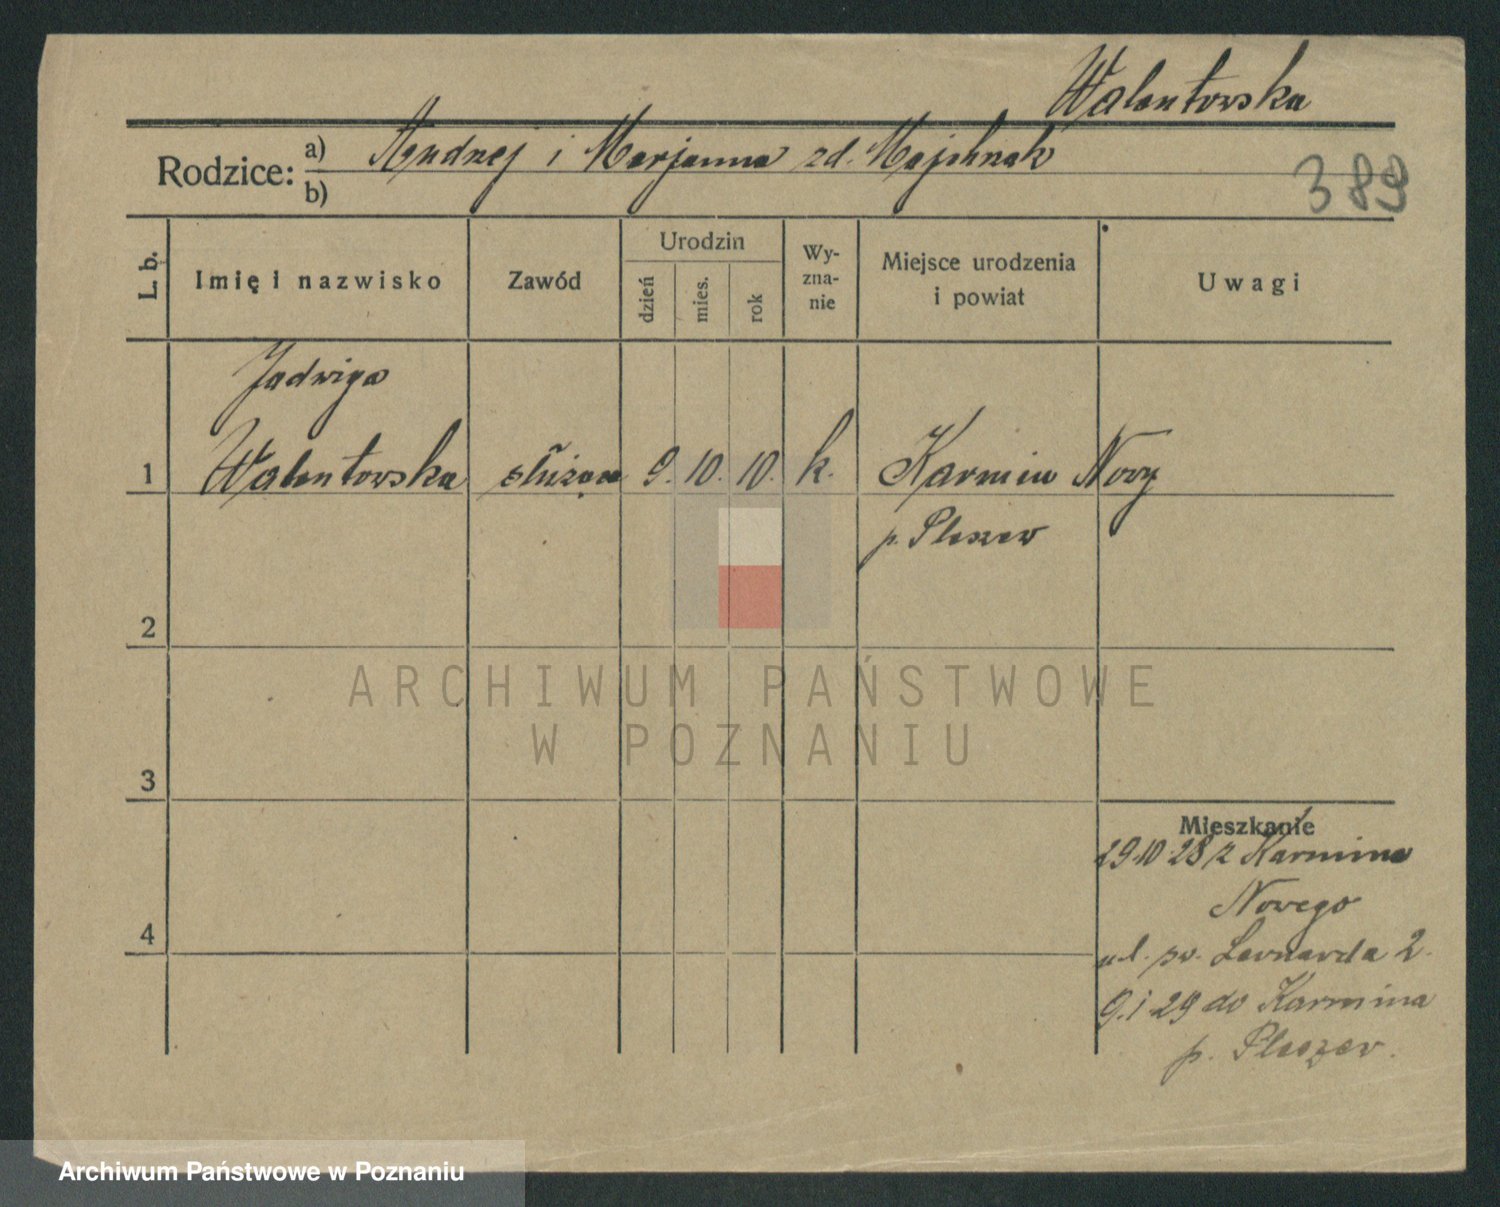 Walentowska
Rodzice: a) Andrzej i Marjanna zd. Majchrzak
b)
389
L. b.
Imię i nazwisko
Zawód
Urodzin
dzień
mies.
rok
Wy-
zna-
nie
Miejsce urodzenia
i powiat
Uwagi
Jadwiga
1 Walentowska służąca 9. 10. 10. k. Karmin Nowy
p. Pleszew
2
ARCHIWUM PAŃSTWOWE
W POZNANIU
3
Mieszkanie
29.10.28 z Karmina
Nowego
4
ul. św. Leonarda 2.
9.1.29 do Karmina
p. Pleszew.
Archiwum Państwowe w Poznaniu